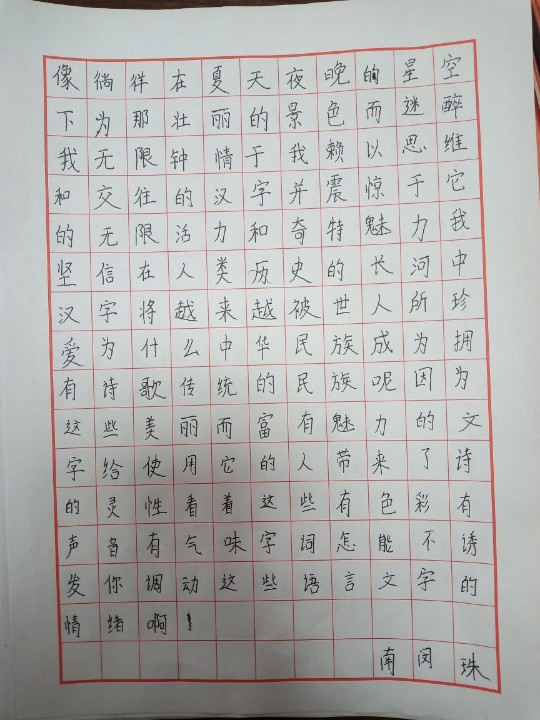 像徜徉在夏天夜晚的星空
下为那壮丽的景色而迷醉
我无限钟情于我赖以思维
和交往的汉字并震惊于它
的无限活力和奇特魅力我
坚信在人类历史的长河中
汉字将越来越被世人所珍
爱为什么中华民族成为拥
有诗歌传统的民族呢因为
这些美丽而富有魅力的文
字给使用它的人带来了诗
的灵性看着这些有色彩有
声音有气味字词怎能不诱
发你调动这些语言文字的
情绪啊！
南闵珠